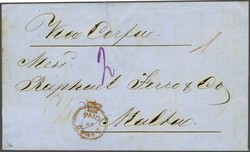 Via Corfu
2
Mess.
Raphael Ferro & Co
PAID
Malta